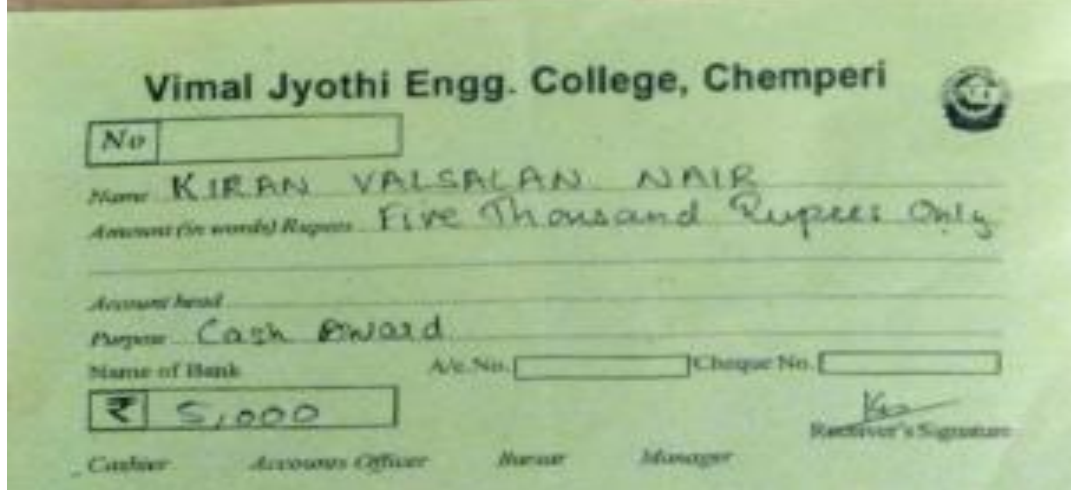 Vimal Jyothi Engg. College, Chemperi
No
Name KIRAN VALSALAN NAIR
Amount (in words) Rupees Five Thousand Rupees Only
Account head
Purpose Cash Award
Name of Bank A/c.No. Cheque No.
₹ 5,000
Receiver's Signature
Cashier Accounts Officer Bursar Manager